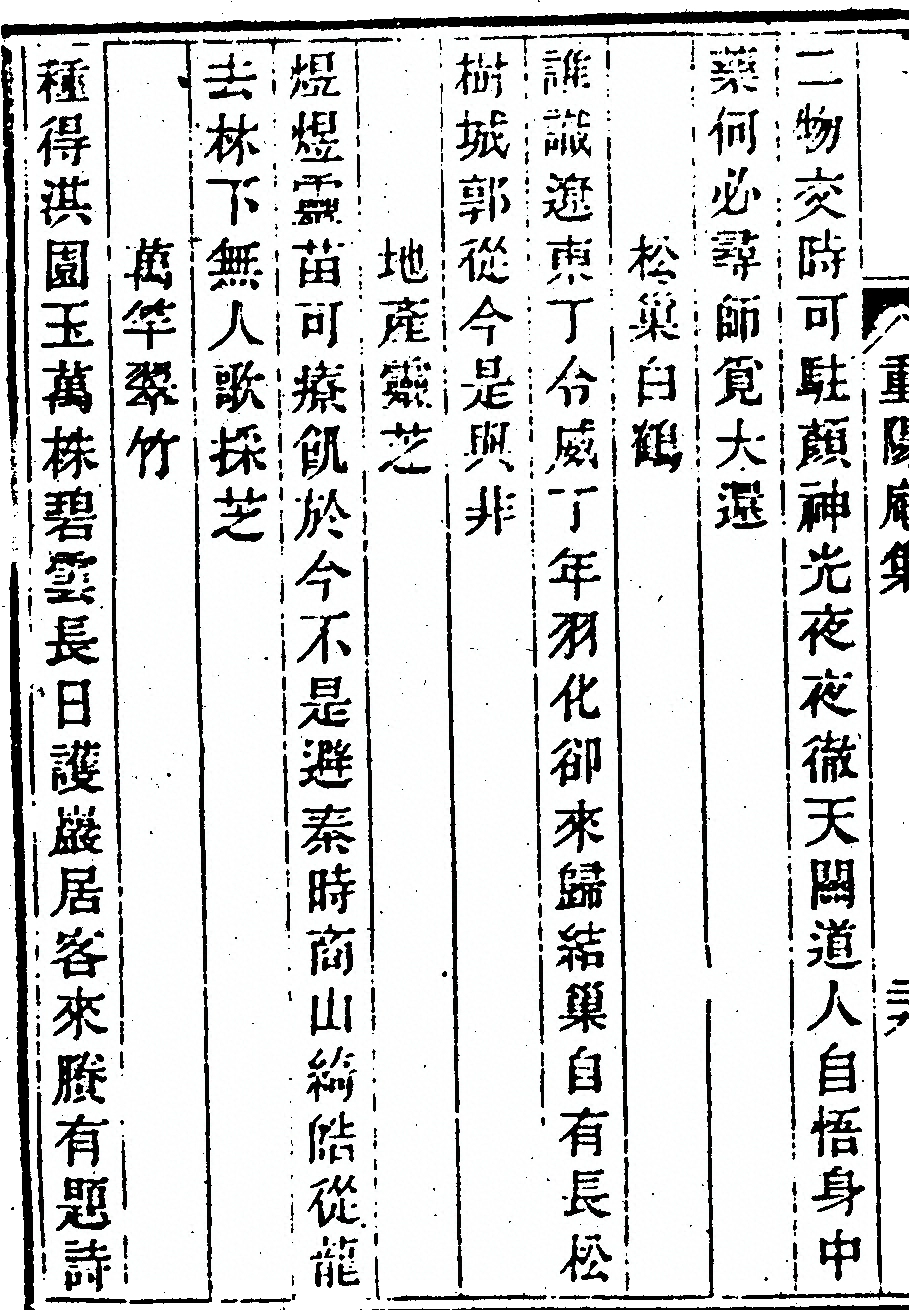 重陽庵集
二物交時可駐顏神光夜夜徹天關道人自悟身中
藥何必尋師覓大還
松巢白鶴
誰識遼東丁令威丁年羽化卻來歸結巢自有長松
樹城郭從今是與非
地產靈芝
煜煜靈苗可療飢於今不是避秦時商山綺皓從龍
去林下無人歌採芝
萬竿翠竹
種得淇園玉萬株碧雲長日護巖居客來賸有題詩